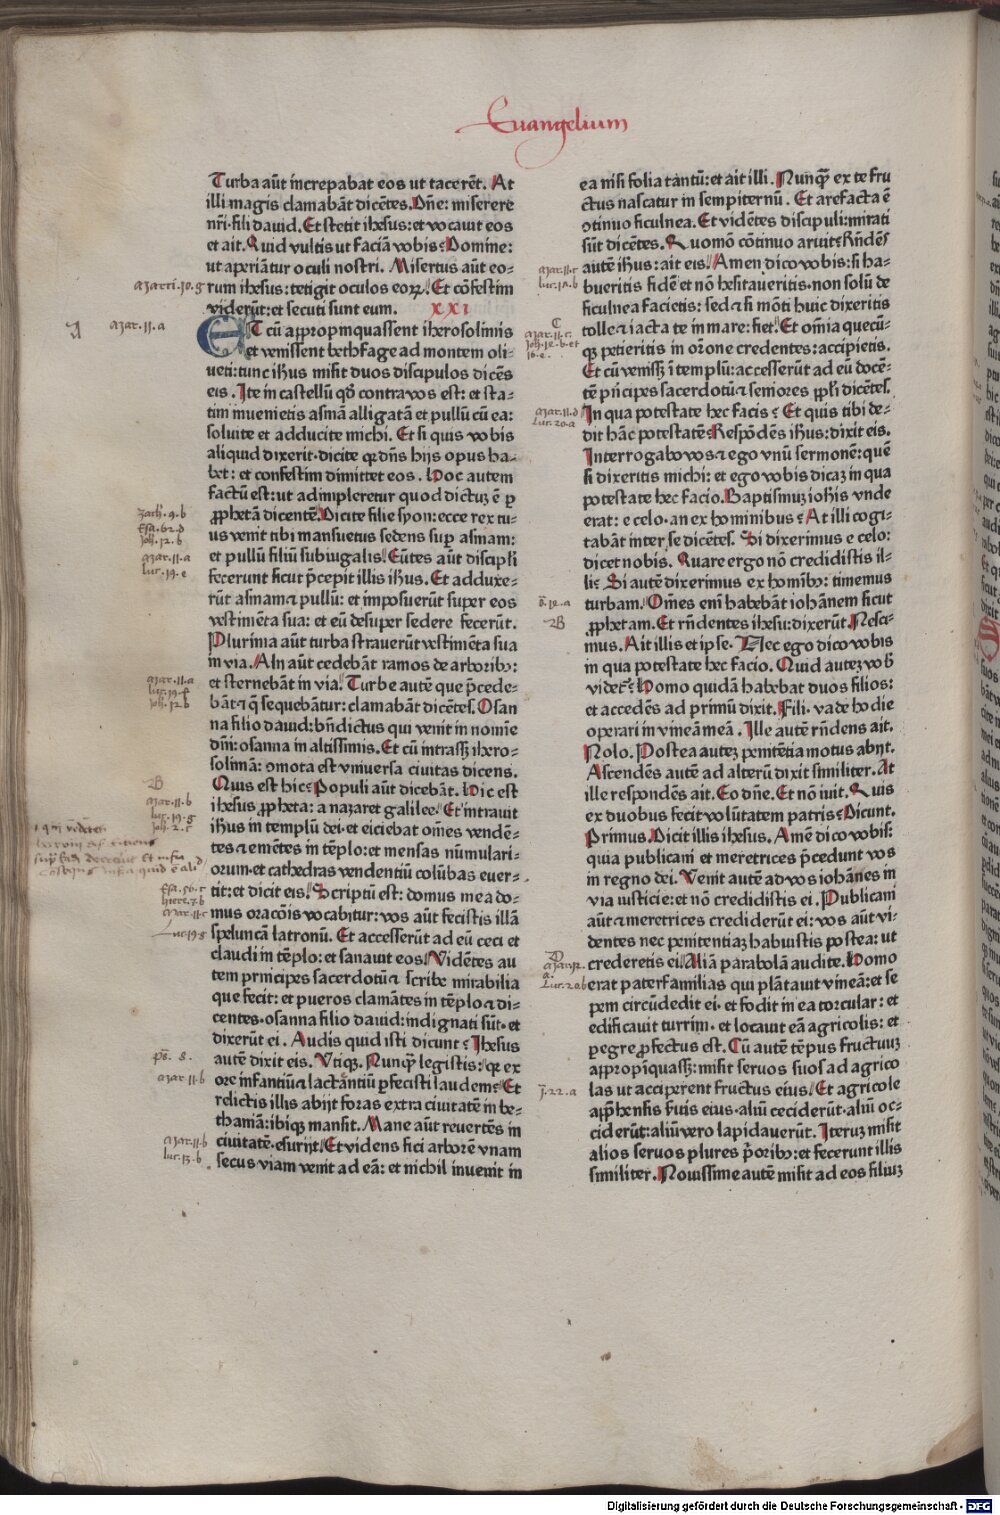 Euangelium
Turba aūt increpabat eos ut tacerēt. At
illi magis clamabāt dicētes. Dñe: miserere
nr̄i fili dauid. Et stetit ihesus: et vocauit eos
et ait. Quid vultis ut faciā vobis? Domine:
ut aperiātur oculi nostri. Misertus aūt eo-
rum ihesus: tetigit oculos eoꝝ. Et cōfestim
viderūt: et secuti sunt eum. XXI
ET cū appropinquassent iherosolimis
et venissent bethfage ad montem oli-
ueti: tunc ihūs misit duos discipulos dicēs
eis. Ite in castellū qđ contra vos est: et sta-
tim inuenietis asinā alligatā et pullū cū ea:
soluite et adducite michi. Et si quis vobis
aliquid dixerit· dicite qꝛ dn̄s hijs opus ha-
bet: et confestim dimittet eos. Hoc autem
factū est: ut adimpleretur quod dictuꝫ ē ꝑ
ꝓphetā dicentē. Dicite filie syon: ecce rex tu-
us venit tibi mansuetus sedens suꝑ asinam:
et pullū filiū subiugalis. Eūtes aūt discipli
fecerunt sicut p̄cepit illis ihūs. Et adduxe-
rūt asinam ⁊ pullū: et imposuerūt super eos
vestimēta sua: et eū desuper sedere fecerūt.
Plurima aūt turba strauerūt vestimēta sua
in via. Alij aūt cedebāt ramos de arboribꝫ:
et sternebāt in via. Turbe autē que p̄cede-
bāt ⁊ q̄ sequebātur: clamabāt dicētes. Osan
na filio dauid: bn̄dictus qui venit in nomīe
dn̄i: osanna in altissimis. Et cū intrassꝫ ihero-
solimā: ꝯmota est vniuersa ciuitas dicens.
Quis est hic? Populi aūt dicebāt. Hic est
ihesus ꝓpheta: a nazaret galilee. Et intrauit
ihūs in templū dei· et eiciebat om̄es vendē-
tes ⁊ emētes in tēplo: et mensas nūmulari-
orum· et cathedras vendentiū colūbas euer-
tit: et dicit eis. Scriptū est: domus mea do-
mus orac̄ois vocabitur: vos aūt fecistis illā
speluncā latronū. Et accesserūt ad eū ceci et
claudi in tēplo: et sanauit eos. Vidētes au
tem principes sacerdotū ⁊ scribe mirabilia
que fecit: et pueros clamātes in tēplo ⁊ di-
centes· osanna filio dauid: indignati sūt· et
dixerūt ei. Audis quid isti dicunt? Ihesus
autē dixit eis. Vtiqꝫ. Nunqꝫ̄ legistis: qꝛ ex
ore infantiū ⁊ lactātiū ꝑfecisti laudem? Et
relictis illis abijt foras extra ciuitatē in be-
thaniā: ibiqꝫ mansit. Mane aūt reuertēs in
ciuitatē· esurijt. Et videns fici arborē vnam
secus viam venit ad eā: et nichil inuenit in
ea nisi folia tantū: et ait illi. Nunqꝫ̄ ex te fru
ctus nascatur in sempiternū. Et arefacta ē
ꝯtinuo ficulnea. Et vidētes discipuli: mirati
sūt dicētes. Quomō cōtinuo aruit? Rn̄dēs
autē ihūs: ait eis. Amen dico vobis: si ha-
bueritis fidē et nō hesitaueritis· non solū de
ficulnea facietis: sed ⁊ si mōti huic dixeritis
tolle ⁊ iacta te in mare: fiet. Et om̄ia quecū-
qꝫ petieritis in or̄one credentes: accipietis.
Et cū venissꝫ ī templū: accesserūt ad eū docē-
tē pi̇ncipes sacerdotū ⁊ seniores ppl̄i dicētes.
In qua potestate hec facis? Et quis tibi de-
dit hāc potestatē? Respōdēs ihūs: dixit eis.
Interrogabo vos ⁊ ego vnū sermonē: quē
si dixeritis michi: et ego vobis dicaꝫ in qua
potestate hec facio. Baptismuꝫ ioh̄is vnde
erat: e celo· an ex hominibus? At illi cogi-
tabāt inter se dicētes. Si dixerimus e celo:
dicet nobis. Quare ergo nō credidistis il-
li? Si autē dixerimus ex homībꝫ: timemus
turbam. Om̄es em̄ habebāt iohānem sicut
ꝓphetam. Et rn̄dentes ihesu: dixerūt. Nesci-
mus. Ait illis et ipse. Nec ego dico vobis
in qua potestate hec facio. Quid auteꝫ vob̄
videt̄? Homo quidā habebat duos filios:
et accedēs ad primū dixit. Fili· vade hodie
operari in vineā meā. Ille autē rn̄dens ait.
Nolo. Postea auteꝫ penitētia motus abijt.
Ascendēs autē ad alterū dixit similiter. At
ille respondēs ait. Eo dn̄e. Et nō iuit. Quis
ex duobus fecit volūtatem patris? Dicunt.
Primus. Dicit illis ihesus. Amē dico vobis:
quia publicani et meretrices p̄cedunt vos
in regno dei. Venit autē ad vos iohānes in
via iusticie: et nō credidistis ei. Publicani
aūt ⁊ meretrices crediderūt ei: vos aūt vi-
dentes nec penitentiaꝫ habuistis postea: ut
crederetis ei. Aliā parabolā audite. Homo
erat paterfamilias qui plātauit vineā: et se
pem circūdedit ei· et fodit in ea torcular: et
edificauit turrim· et locauit eā agricolis: et
ꝑegre ꝓfectus est. Cū autē tēpus fructuuꝫ
appropiquassꝫ: misit seruos suos ad agrico
las ut acciperent fructus eius. Et agricole
app̄hensis suis eius· aliū ceciderūt· aliū oc-
ciderūt: aliū vero lapidauerūt. Iteruꝫ misit
alios seruos plures p̄oribꝫ: et fecerunt illis
similiter. Nouissime autē misit ad eos filiuꝫ
A
Mar. 11. a
Zach. 9. b
Esa. 62. d
Joh. 12. b
Mar. 11. a
Luc. 19. e
Mar. 11. a
Luc. 19. f
Joh. 12. b
B
Mar. 11. b
Luc. 19. g
Joh. 2. c
Esa. 56. c
Hiere. 7. b
Mar. 11. c
Luc. 19 g
ps. 8.
Mar 11. b
Mar. 11. b
Luc. 13. b
Mar. 11. c
C
Mar. 11. c
Mar. 11. d
Luc. 20. a
B
D
Mar. 12.
Luc. 20. b
J. 22. a
Digitalisierung gefördert durch die Deutsche Forschungsgemeinschaft - DFG